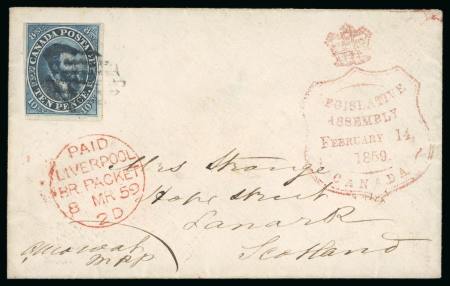 CANADA POSTAGE
TEN PENCE
LEGISLATIVE
ASSEMBLY
FEBRUARY 14,
1859.
CANADA
PAID
LIVERPOOL
BR. PACKET
8 MR 59
2D
Mrs Strange
Hope Street
Lanark
Scotland
MPP